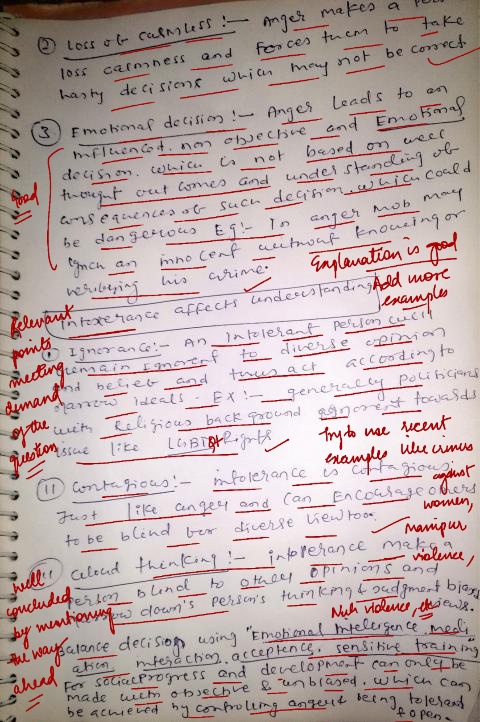 ② Loss of calmness :- Anger makes a pers
loss calmness and forces them to take
hasty decisions which may not be correct
③ Emotional decision :- Anger leads to an
influenced, non objective and Emotional
decision. which is not based on well
thought outcomes and understanding of
consequences of such decision. which could
be dangerous Eg:- In anger mob may
lynch an innocent without knowing or
verifying his crime.
good
Explanation is good
Add more
examples
Intolerance affects understanding
Relevant
points
meeting
demand
of the
question
Ignorance :- An Intolerant Person will
remain ignorent to diverse opinion
and belief and thus act according to
narrow ideals. EX :- generally politicians
with Religious background ignorent towards
issue like LGBTQ+ rights
Try to use recent
examples like crimes
against
women,
manipur
violence,
Nuh violence, etc
(11) Contagious :- intolerance is contagious
Just like anger and can Encourage others
to be blind for diverse view too.
Cloud thinking :- intolerance make a
person blind to other opinions and
down's person's thinking & judgment bias
views.
well
concluded
by mentioning
the way
ahead
Balance decision using "Emotional Intelligence, medi
ation interaction, acceptance, sensitive training
For social progress and development can only be
made with objective & unbiased. which can
be achieved by controlling anger & being tolerant
& open.